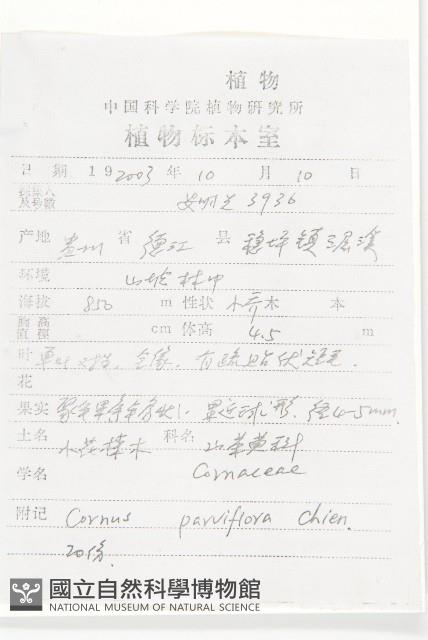 植物
中国科学院植物研究所
植物标本室
日期 19 2003 年 10 月 10 日
采集人
及号数 安明先 3936
产地 贵州 省 德江 县 稳坪镇
环境 山坡林中
海拔 850 m 性状 小乔木 本
胸高
直径 cm 体高 4.5 m
叶 单叶对生,全缘,有疏贴伏短毛.
花
果实 果近球形,径4-5mm.
土名 小花梾木 科名 山茱萸科
学名 Cornaceae
附记 Cornus parviflora Chien.
20份.
國立自然科學博物館
NATIONAL MUSEUM OF NATURAL SCIENCE